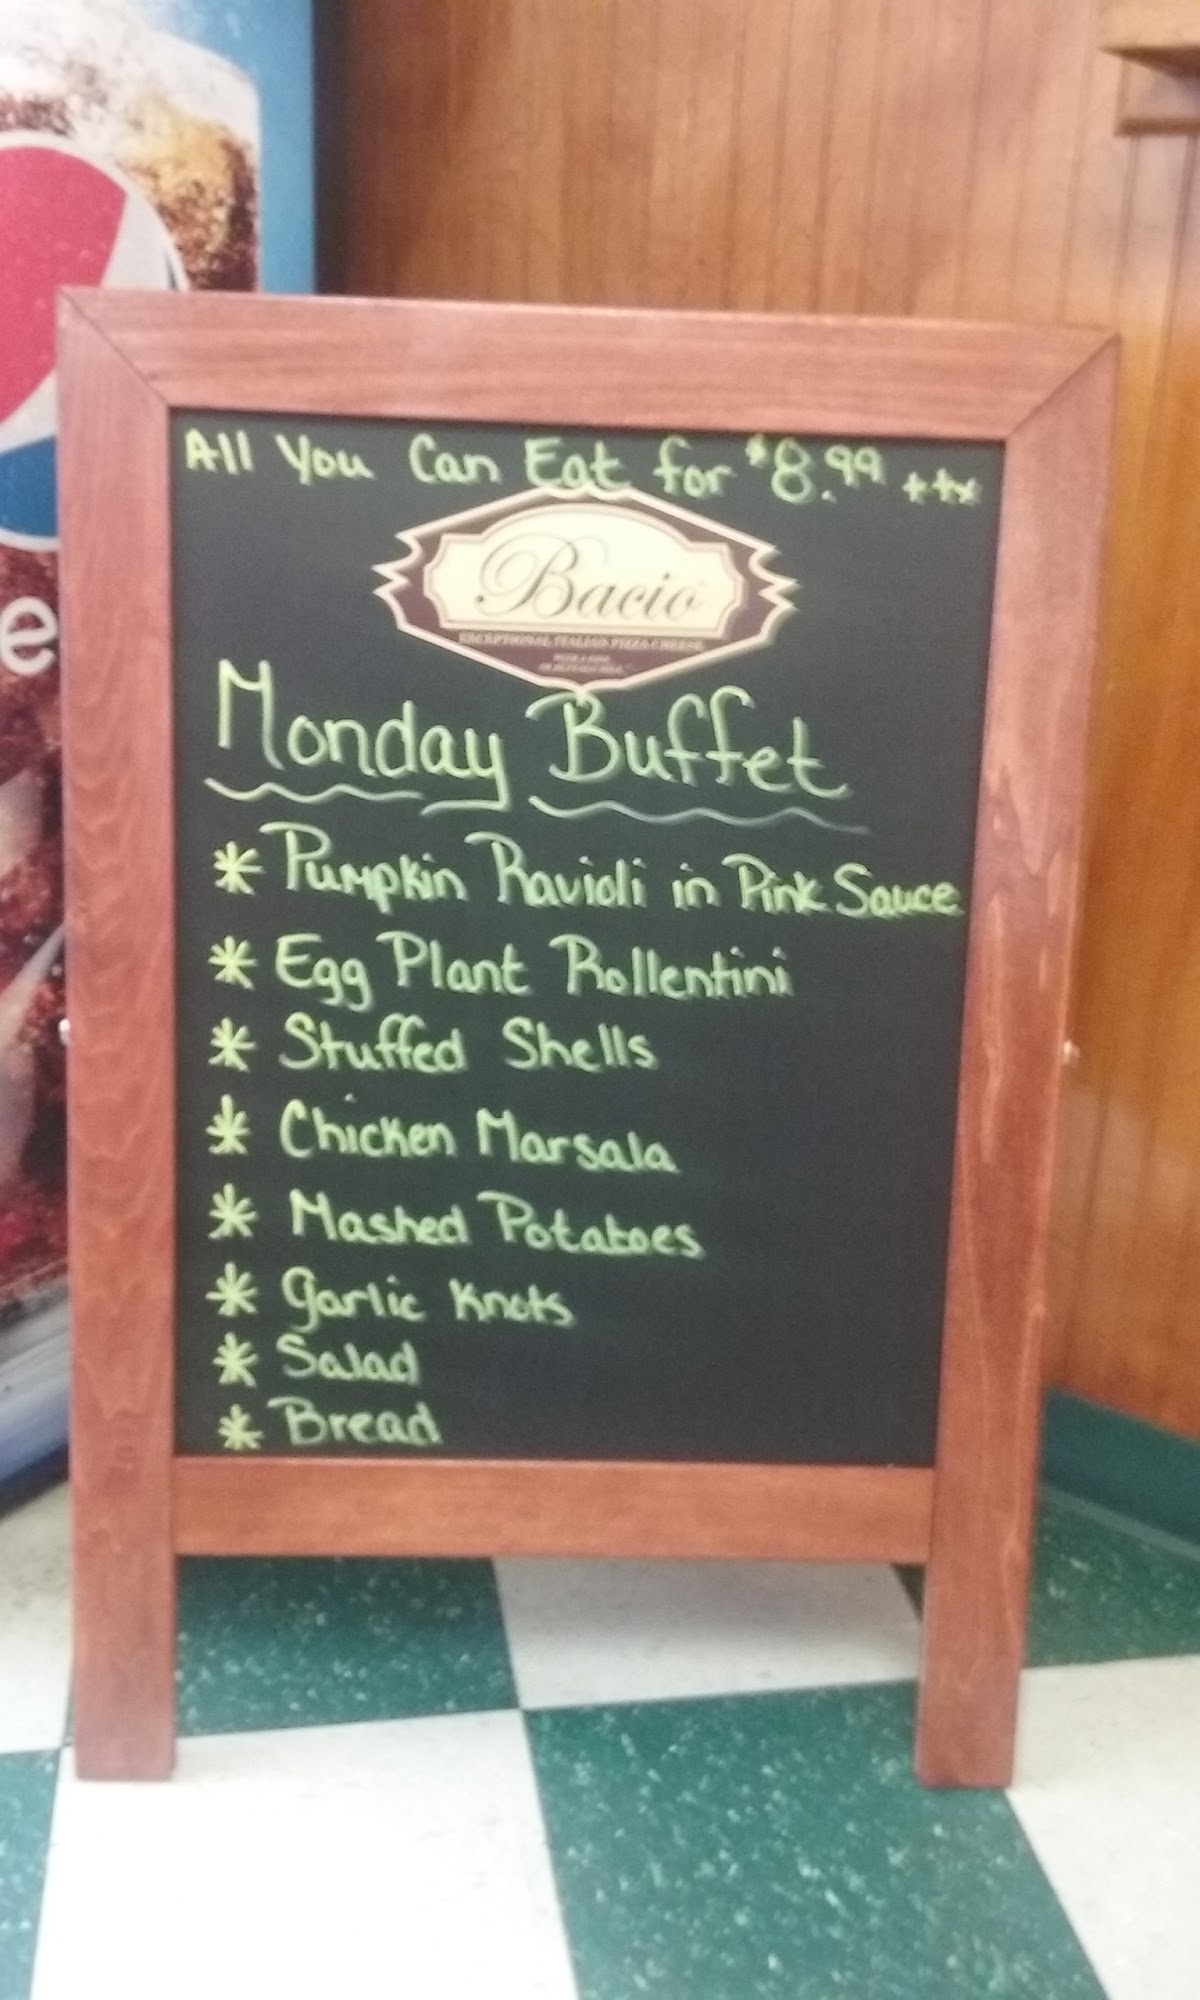 All You Can Eat for $8.99 + tx
Bacio
EXCEPTIONAL ITALIAN PIZZA CHEESE
WITH A KISS
OF BUFFALO MILK
Monday Buffet
* Pumpkin Ravioli in Pink Sauce
* Egg Plant Rollentini
* Stuffed Shells
* Chicken Marsala
* Mashed Potatoes
* Garlic Knots
* Salad
* Bread
e